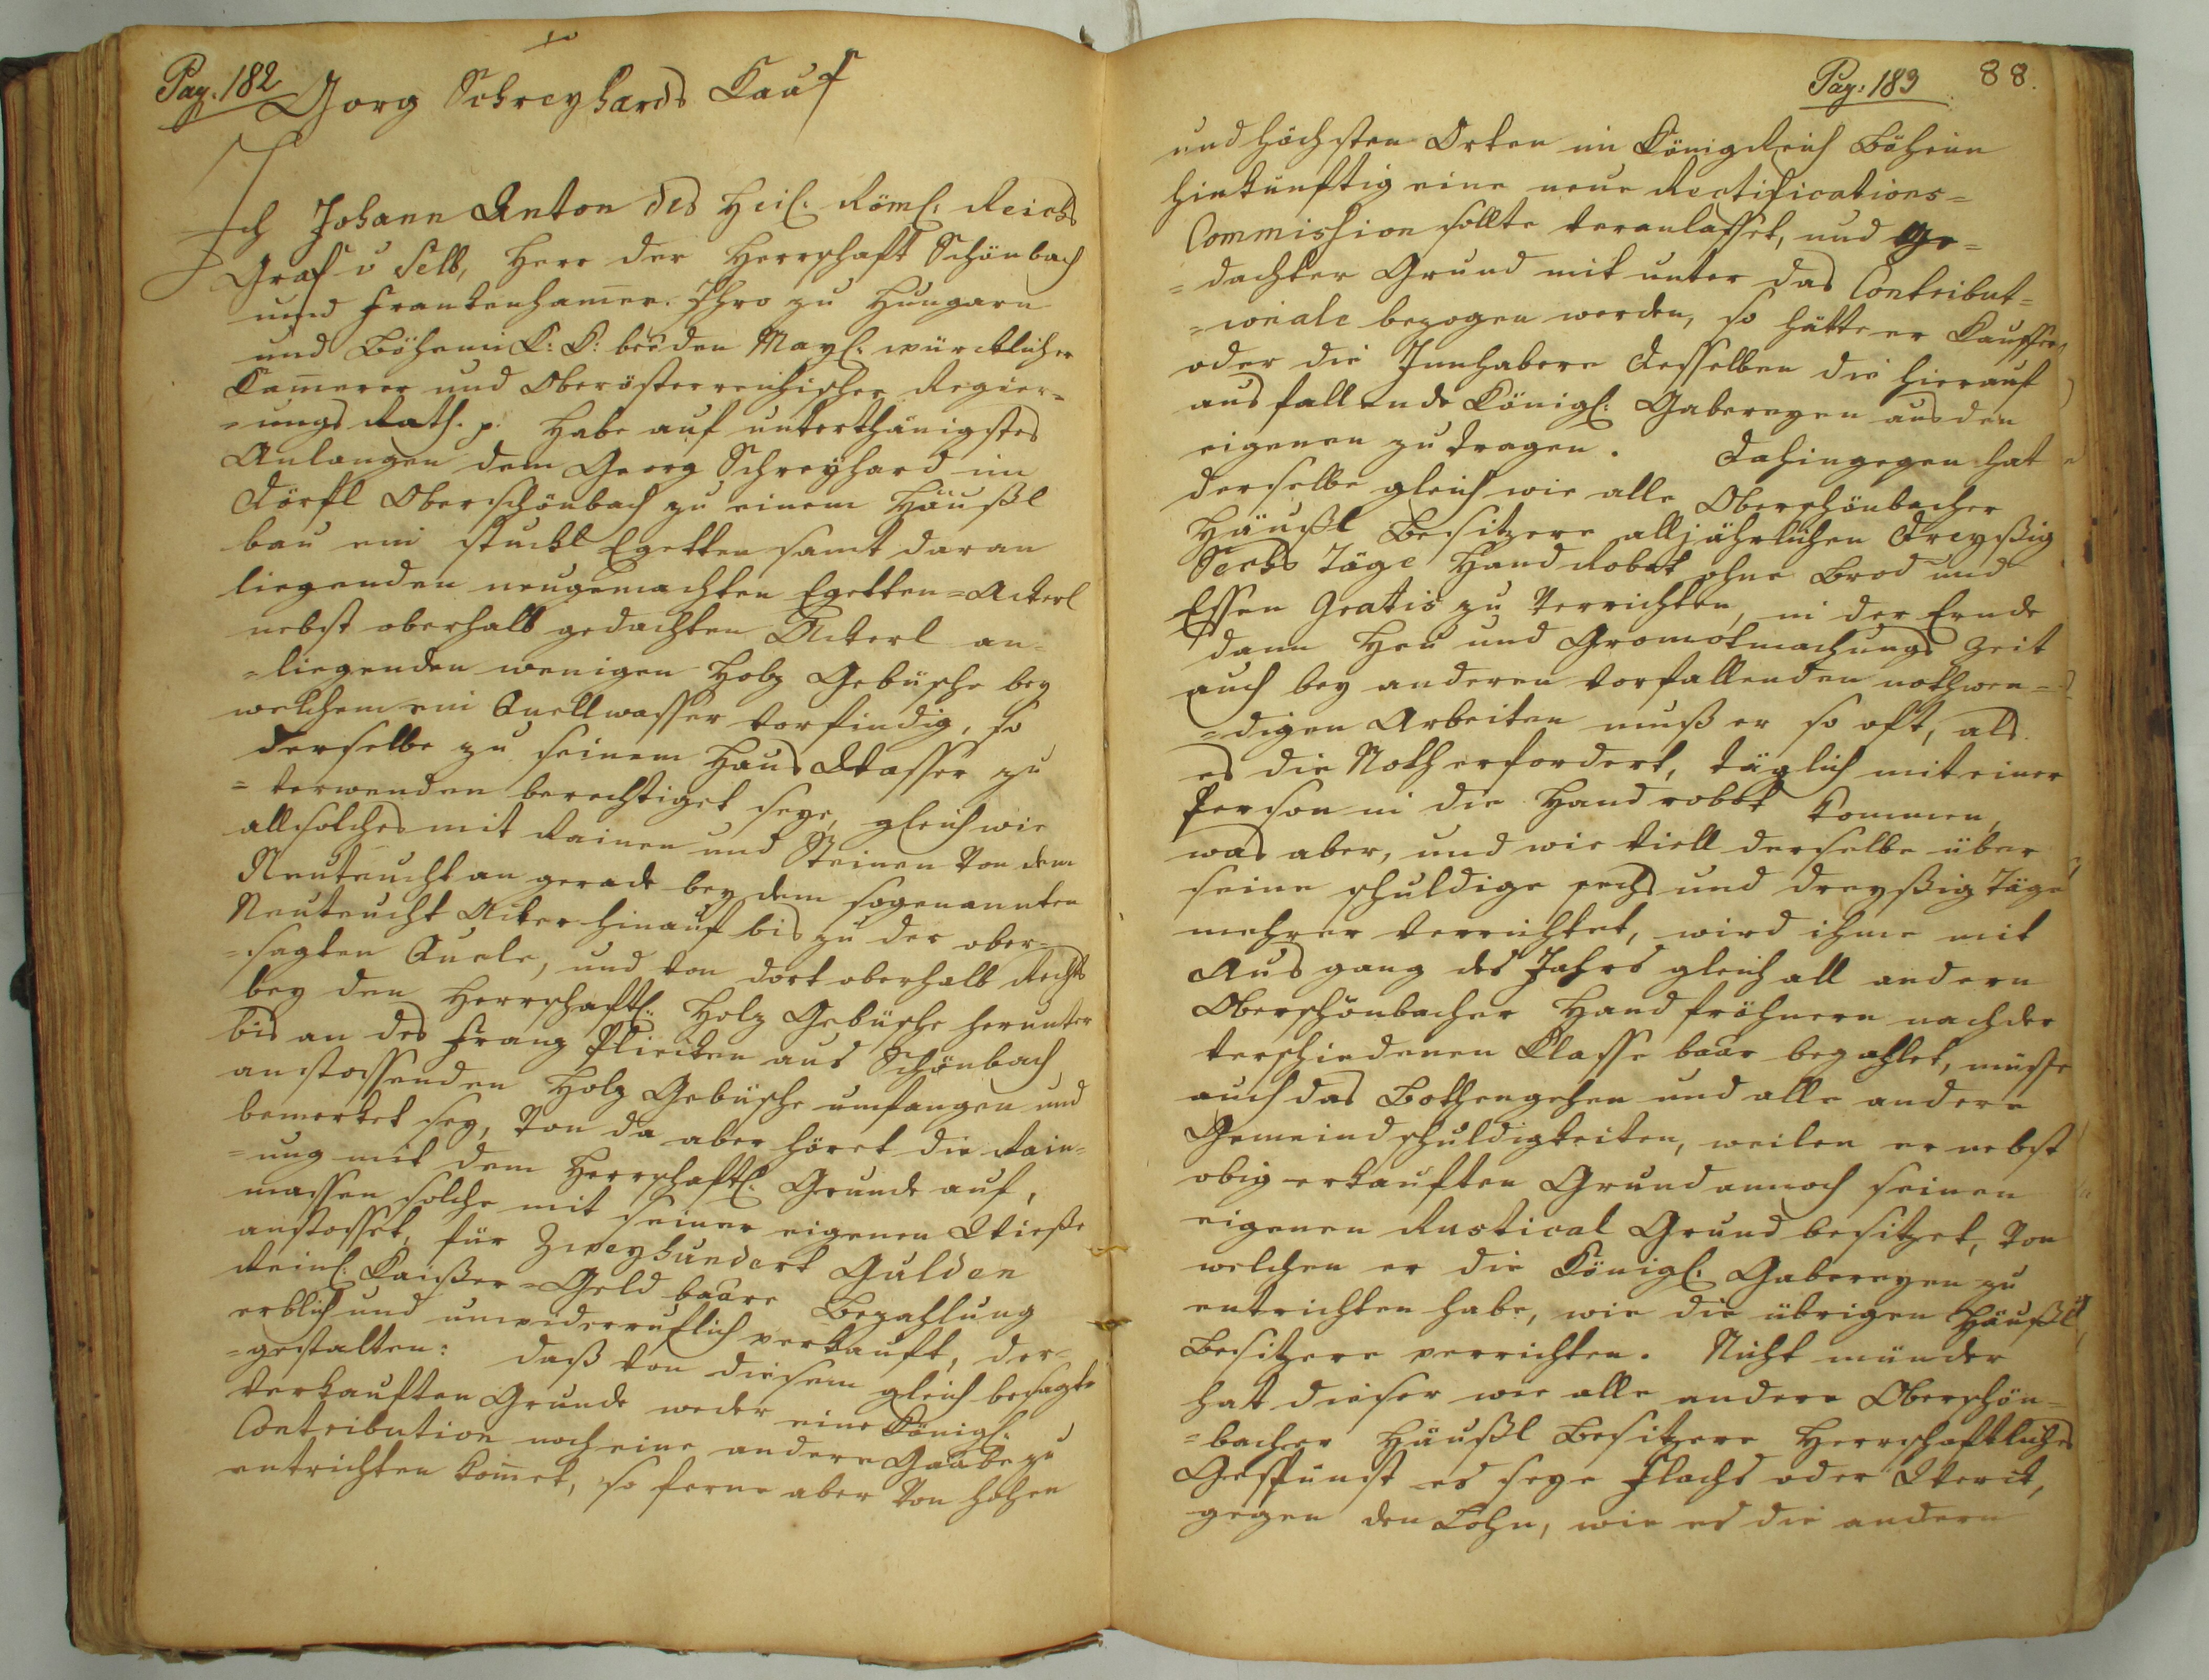 Pag. 182
Georg Schreyhards Kauf
Ich Johann Anton des Heil: Röml: Reichs
Graf v Selb, Herr der Herrschaft Schönbach
und Frankenham̅er. Ihro zu Hungarn
und Böheim K: K: beeden Mayl: würcklicher
Kam̅erer und Oberösterreichischer Regier=
=ungs Rath. p: Habe auf unterthänigstes
Anlangen dem Georg Schreyhard im
Dörfl Oberschönbach zu einem Häußl
bau ein stuckl Egetten samt daran
liegenden neugemachten Egetten=Ackerl
nebst oberhalb gedachten Ackerl an=
=liegenden wenigen Holz Gebüsche bey
welchem ein Quellwasser vorfindig, so
derselbe zu seinem Haus Wasser zu
=verwenden berechtiget seye, gleich wie
all solches mit Rainen und Steinen von dem
Neuteucht an gerade bey dem sogenannten
Neuteucht Acker hinauf bis zu der ober=
=sagten Quele, und von dort oberhalb Rechts
bey den Herrschaftl: Holz Gebüsche herunter
bis an des Franz Plieiken aus Schönbach
anstossenden Holz Gebüsche umfangen und
bemerket sey, von da aber höret die Rain=
=ung mit dem Herrschaftl: Grunde auf,
massen solche mit seiner eigenen Wieße
anstosset, für Zweyhundert Gulden
Reinl: Kaißer=Geld baare Bezahlung
erblich und unwiderruflich verkauft, der=
=gestalten: daß von diesem gleich besagte
verkauften Grunde weder eine Königl:
Contribution noch eine andere Gaabe zu
entrichten kom̅et, so ferne aber von hohen
Pag: 183 88.
und höchsten Orten im Königreich Böheim
hinkünftig eine neue Rectifications=
Commission sollte veranlasset, und Ge=
=dachter Grund mit unter das Contribut=
=ionale bezogen werden, so hätte er Kauffer
oder die Innhabere desselben die hierauf
ausfallende Königl: Gabereyen aus den
eigenen zu tragen. Dahingegen hat
derselbe gleich wie alle Oberschönbacher
Häußl Besitzere alljährlichen Dreyßig
Sechs Täge Hand Robot ohne Brod und
Essen Gratis zu verrichten, in der Ernde
dann Heu und Gromotmachungs Zeit
auch bey anderen vorfallenden nothwen=
=digen Arbeiten muß er so oft, als
es die Noth erfordert, täglich mit einer
Person in die Hand robot kommen,
was aber, und wie viell derselbe über
seine schuldige sechs und dreyßig Täge
mehrer verrichtet, wird ihme mit
Ausgang des Jahrs gleich all andern
Oberschönbacher Hand fröhnern nach der
verschiedenen Klasse baar bezahlet, müsse
auch das Bothengehen und alle andere
Gemeindschuldigkeiten, weilen er nebst
obig erkauften Grund annoch seinen
eigenen Rustical Grund besitzet, von
welchen er die Königl: Gabereyen zu
entrichten habe, wie die übrigen Häußl
Besitzere verrichten. Nicht münder
hat dieser wie alle andere Oberschön=
=bacher Häußl Besitzere Herrschaftliches
Gespunst es seye Flachs oder Werck,
gegen den Lohn, wie es die andern